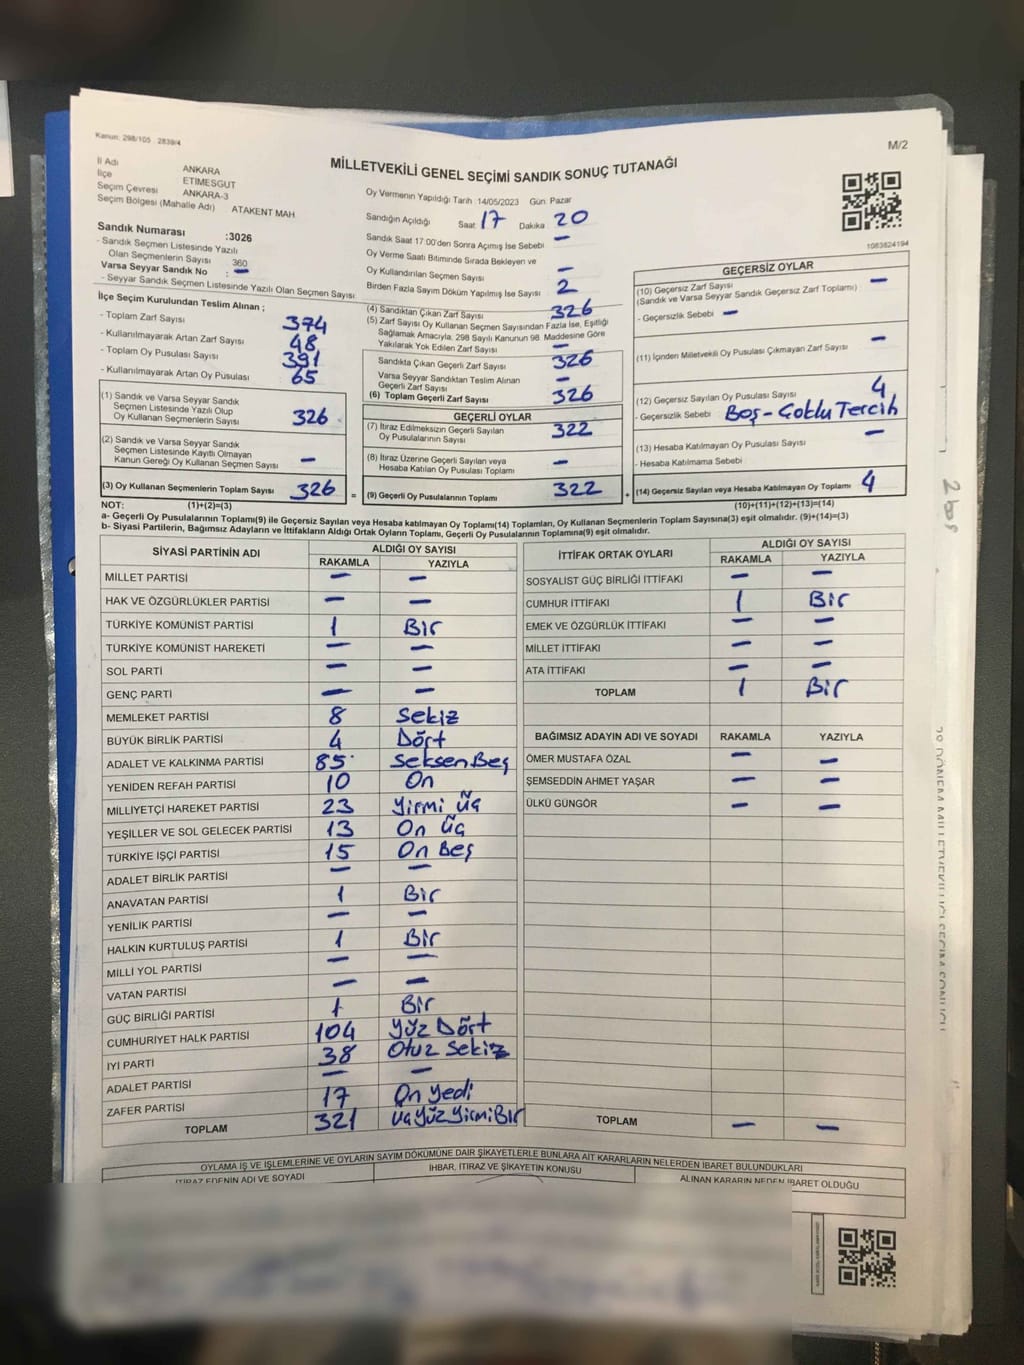 Kanun: 298/105 2839/4
M/2
MİLLETVEKİLİ GENEL SEÇİMİ SANDIK SONUÇ TUTANAĞI
İl Adı ANKARA
İlçe ETİMESGUT
Seçim Çevresi ANKARA-3
Seçim Bölgesi (Mahalle Adı) ATAKENT MAH.
Sandık Numarası :3026
- Sandık Seçmen Listesinde Yazılı
Olan Seçmenlerin Sayısı 360
Varsa Seyyar Sandık No : –
- Seyyar Sandık Seçmen Listesinde Yazılı Olan Seçmen Sayısı:
İlçe Seçim Kurulundan Teslim Alınan ;
- Toplam Zarf Sayısı 374
- Kullanılmayarak Artan Zarf Sayısı 48
- Toplam Oy Pusulası Sayısı 391
- Kullanılmayarak Artan Oy Pusulası 65
(1) Sandık ve Varsa Seyyar Sandık
Seçmen Listesinde Yazılı Olup
Oy Kullanan Seçmenlerin Sayısı 326
(2) Sandık ve Varsa Seyyar Sandık
Seçmen Listesinde Kayıtlı Olmayan
Kanun Gereği Oy Kullanan Seçmen Sayısı –
(3) Oy Kullanan Seçmenlerin Toplam Sayısı 326
Oy Vermenin Yapıldığı Tarih :14/05/2023 Gün: Pazar
Sandığın Açıldığı Saat: 17 Dakika 20
Sandık Saat 17:00'den Sonra Açımış İse Sebebi –
Oy Verme Saati Bitiminde Sırada Bekleyen ve
Oy Kullandırılan Seçmen Sayısı –
Birden Fazla Sayım Döküm Yapılmış İse Sayısı 2
(4) Sandıktan Çıkan Zarf Sayısı 326
(5) Zarf Sayısı Oy Kullanan Seçmen Sayısından Fazla İse, Eşitliği
Sağlamak Amacıyla, 298 Sayılı Kanunun 98. Maddesine Göre
Yakılarak Yok Edilen Zarf Sayısı –
Sandıkta Çıkan Geçerli Zarf Sayısı 326
Varsa Seyyar Sandıktan Teslim Alınan
Geçerli Zarf Sayısı –
(6) Toplam Geçerli Zarf Sayısı 326
GEÇERLİ OYLAR
(7) İtiraz Edilmeksizin Geçerli Sayılan
Oy Pusulalarının Sayısı 322
(8) İtiraz Üzerine Geçerli Sayılan veya
Hesaba Katılan Oy Pusulası Toplamı –
= (9) Geçerli Oy Pusulalarının Toplamı 322
1083824194
GEÇERSİZ OYLAR
(10) Geçersiz Zarf Sayısı –
(Sandık ve Varsa Seyyar Sandık Geçersiz Zarf Toplamı)
- Geçersizlik Sebebi –
(11) İçinden Milletvekili Oy Pusulası Çıkmayan Zarf Sayısı –
(12) Geçersiz Sayılan Oy Pusulası Sayısı 4
- Geçersizlik Sebebi Boş-Çoklu Tercih
(13) Hesaba Katılmayan Oy Pusulası Sayısı –
- Hesaba Katılmama Sebebi
+ (14) Geçersiz Sayılan veya Hesaba Katılmayan Oy Toplamı 4
NOT: (1)+(2)=(3) (10)+(11)+(12)+(13)=(14)
a- Geçerli Oy Pusulalarının Toplamı(9) ile Geçersiz Sayılan veya Hesaba katılmayan Oy Toplamı(14) Toplamları, Oy Kullanan Seçmenlerin Toplam Sayısına(3) eşit olmalıdır. (9)+(14)=(3)
b- Siyasi Partilerin, Bağımsız Adayların ve İttifakların Aldığı Ortak Oyların Toplamı, Geçerli Oy Pusulalarının Toplamına(9) eşit olmalıdır.
SİYASİ PARTİNİN ADI ALDIĞI OY SAYISI
RAKAMLA YAZIYLA
MİLLET PARTİSİ – –
HAK VE ÖZGÜRLÜKLER PARTİSİ – –
TÜRKİYE KOMÜNİST PARTİSİ 1 Bir
TÜRKİYE KOMÜNİST HAREKETİ – –
SOL PARTİ – –
GENÇ PARTİ – –
MEMLEKET PARTİSİ 8 Sekiz
BÜYÜK BİRLİK PARTİSİ 4 Dört
ADALET VE KALKINMA PARTİSİ 85 Seksen Beş
YENİDEN REFAH PARTİSİ 10 On
MİLLİYETÇİ HAREKET PARTİSİ 23 Yirmi Üç
YEŞİLLER VE SOL GELECEK PARTİSİ 13 On Üç
TÜRKİYE İŞÇİ PARTİSİ 15 On Beş
ADALET BİRLİK PARTİSİ – –
ANAVATAN PARTİSİ 1 Bir
YENİLİK PARTİSİ – –
HALKIN KURTULUŞ PARTİSİ 1 Bir
MİLLİ YOL PARTİSİ – –
VATAN PARTİSİ – –
GÜÇ BİRLİĞİ PARTİSİ 1 Bir
CUMHURİYET HALK PARTİSİ 104 Yüz Dört
İYİ PARTİ 38 Otuz Sekiz
ADALET PARTİSİ – –
ZAFER PARTİSİ 17 On Yedi
TOPLAM 321 Üç Yüz Yirmi Bir
İTTİFAK ORTAK OYLARI ALDIĞI OY SAYISI
RAKAMLA YAZIYLA
SOSYALİST GÜÇ BİRLİĞİ İTTİFAKI – –
CUMHUR İTTİFAKI 1 Bir
EMEK VE ÖZGÜRLÜK İTTİFAKI – –
MİLLET İTTİFAKI – –
ATA İTTİFAKI – –
TOPLAM 1 Bir
BAĞIMSIZ ADAYIN ADI VE SOYADI RAKAMLA YAZIYLA
ÖMER MUSTAFA ÖZAL – –
ŞEMSEDDİN AHMET YAŞAR – –
ÜLKÜ GÜNGÖR – –
TOPLAM – –
OYLAMA İŞ VE İŞLEMLERİNE VE OYLARIN SAYIM DÖKÜMÜNE DAİR ŞİKAYETLERLE BUNLARA AİT KARARLARIN NELERDEN İBARET BULUNDUKLARI
İTİRAZ EDENİN ADI VE SOYADI İHBAR, İTİRAZ VE ŞİKAYETİN KONUSU ALINAN KARARIN NEDEN İBARET OLDUĞU
2 boş